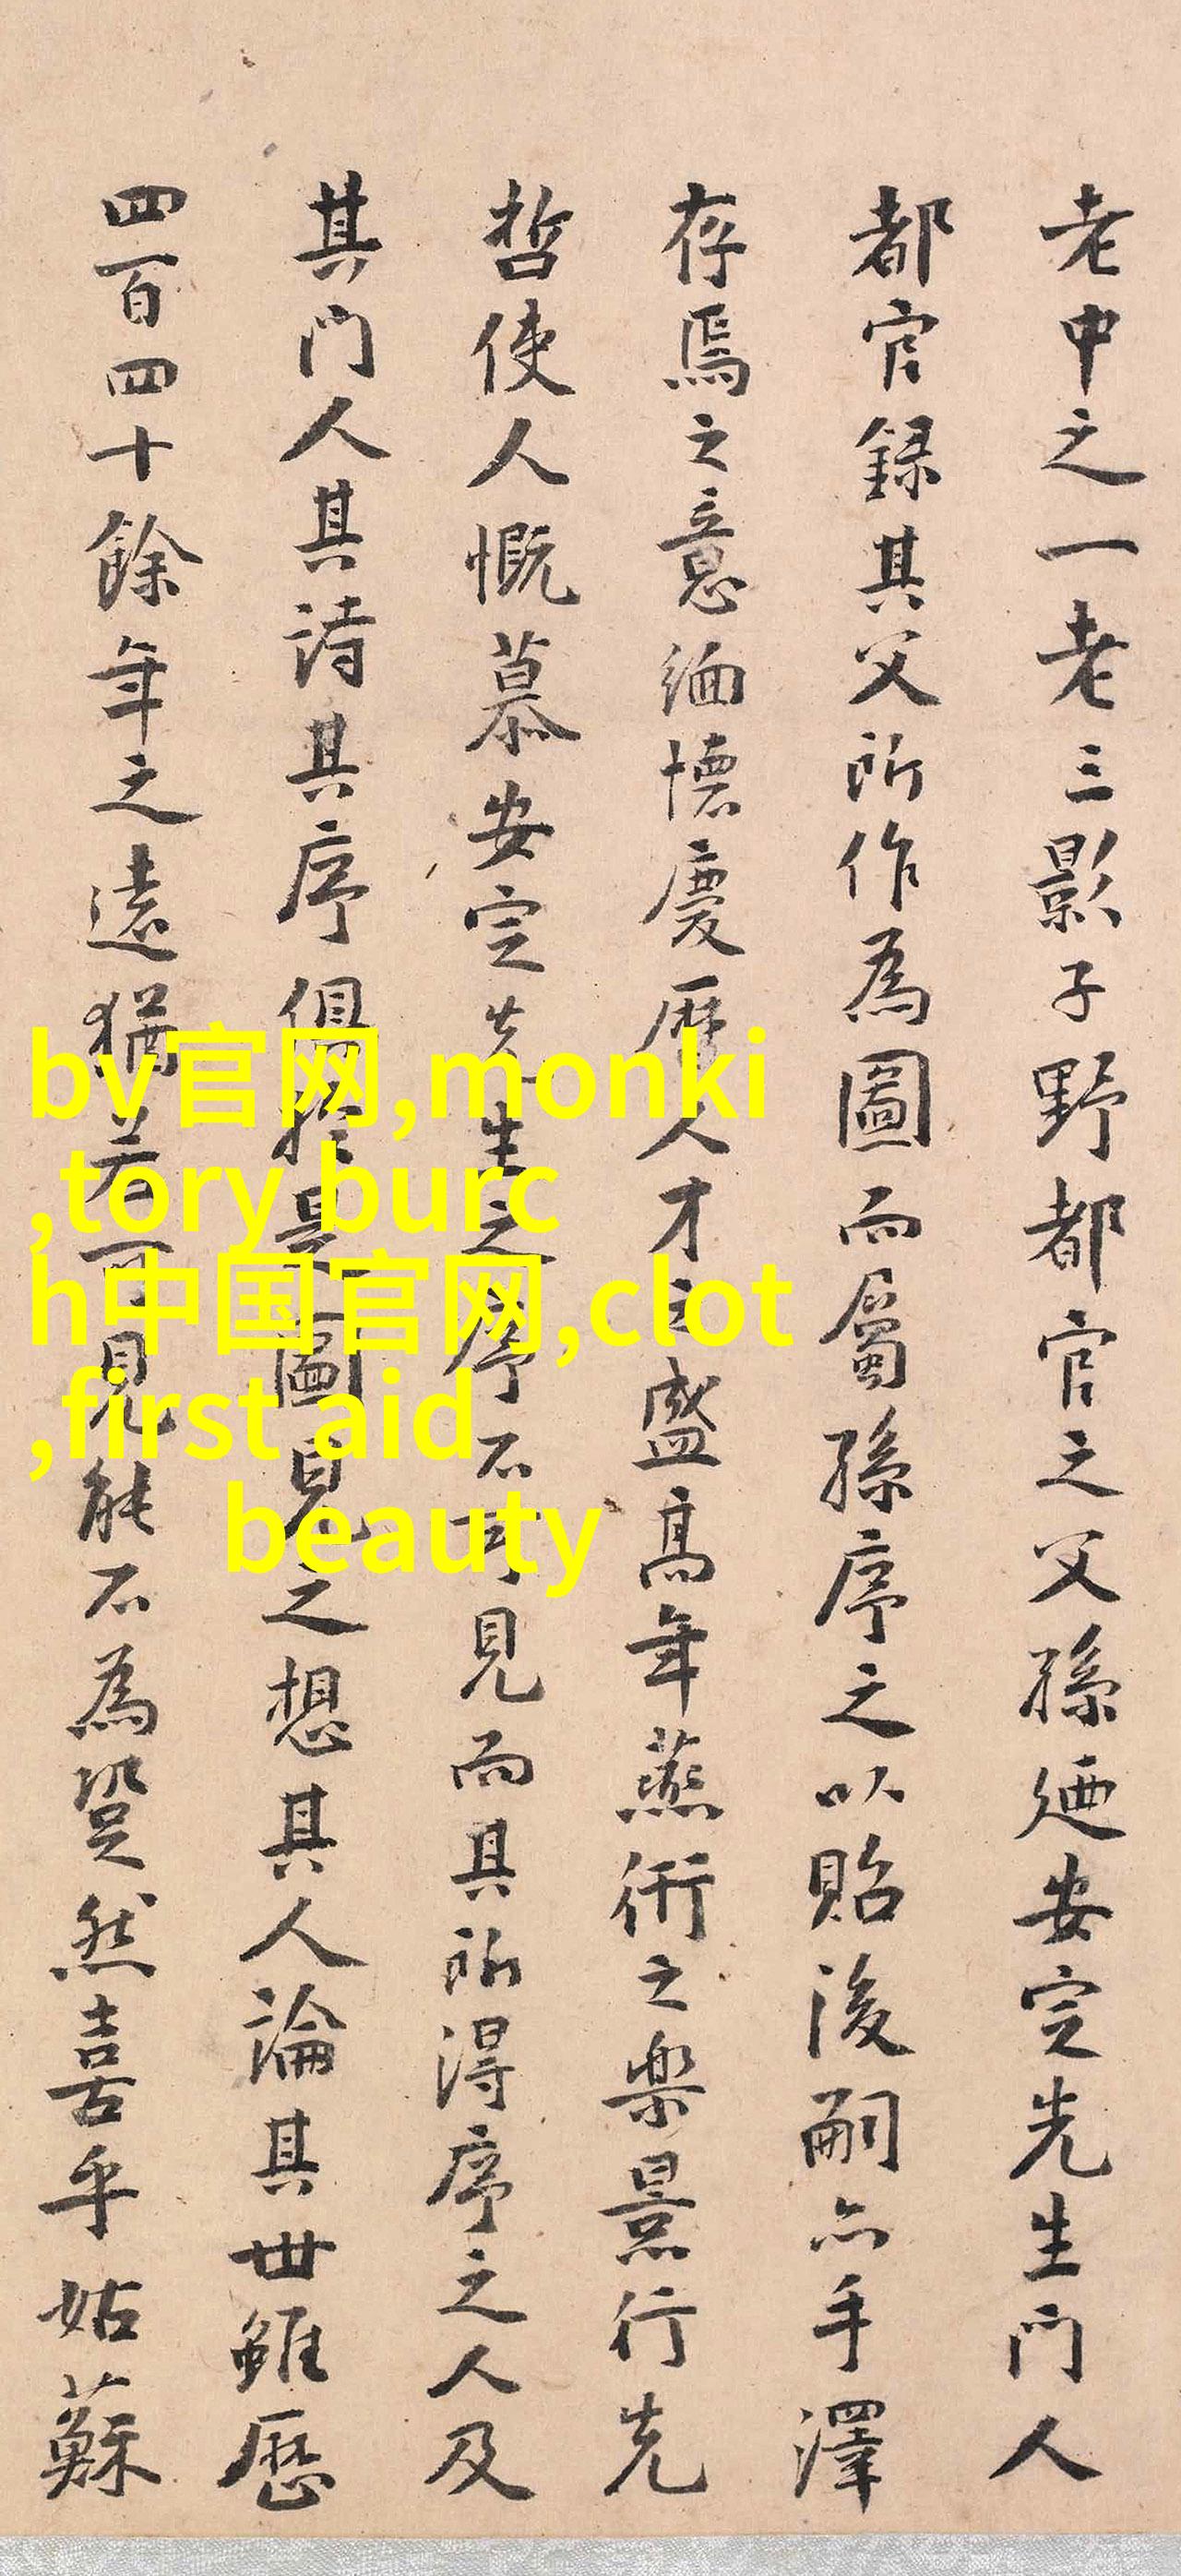 老中之一老三影子野都官之父孫廼安定先生門人
都官録其父所作為圖而屬孫序之以貽後嗣亦手澤
存焉之意緬懷慶曆人才之盛高年燕衎之樂景行先
哲使人慨慕安定先生之序不可見而其所得序之人及
其門人其詩其序俱於是圖見之想其人論其世雖歷
四百四十餘年之遠猶若可見能不為跫然喜乎姑蘇
by官网,monki
,tory burc
h中国官网,clot
,first aid
beauty